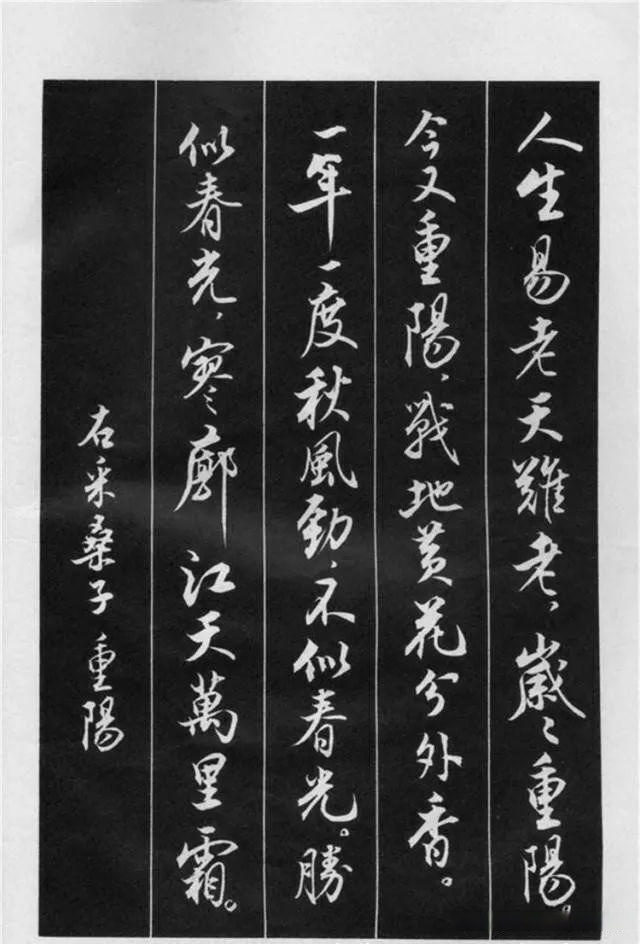 人生易老天難老，歲々重陽。
今又重陽，戰地黃花分外香。
一年一度秋風勁，不似春光。勝
似春光，寥廓江天萬里霜。
右采桑子 重陽